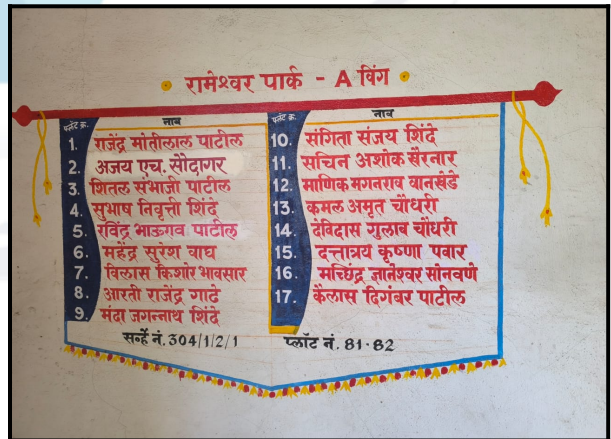 रामेश्वर पार्क - A विंग
फ्लॅट क्र. नाव
1. राजेंद्र मोतीलाल पाटील
2. अजय एच. सौदागर
3. शितल संभाजी पाटील
4. सुभाष निवृत्ती शिंदे
5. रविंद्र भाऊराव पाटील
6. महेंद्र सुरेश वाघ
7. विलास किशोर भावसार
8. आरती राजेंद्र गाढे
9. मंदा जगन्नाथ शिंदे
फ्लॅट क्र. नाव
10. संगिता संजय शिंदे
11. सचिन अशोक सैरनार
12. माणिक मगनराव वानखेडे
13. कमल अमृत चौधरी
14. देविदास गुलाब चौधरी
15. दत्तात्रय कृष्णा पवार
16. मच्छिंद्र ज्ञानेश्वर सोनवणे
17. कैलास दिगंबर पाटील
सर्व्हे नं. 304/1/2/1 प्लॉट नं. 81-82